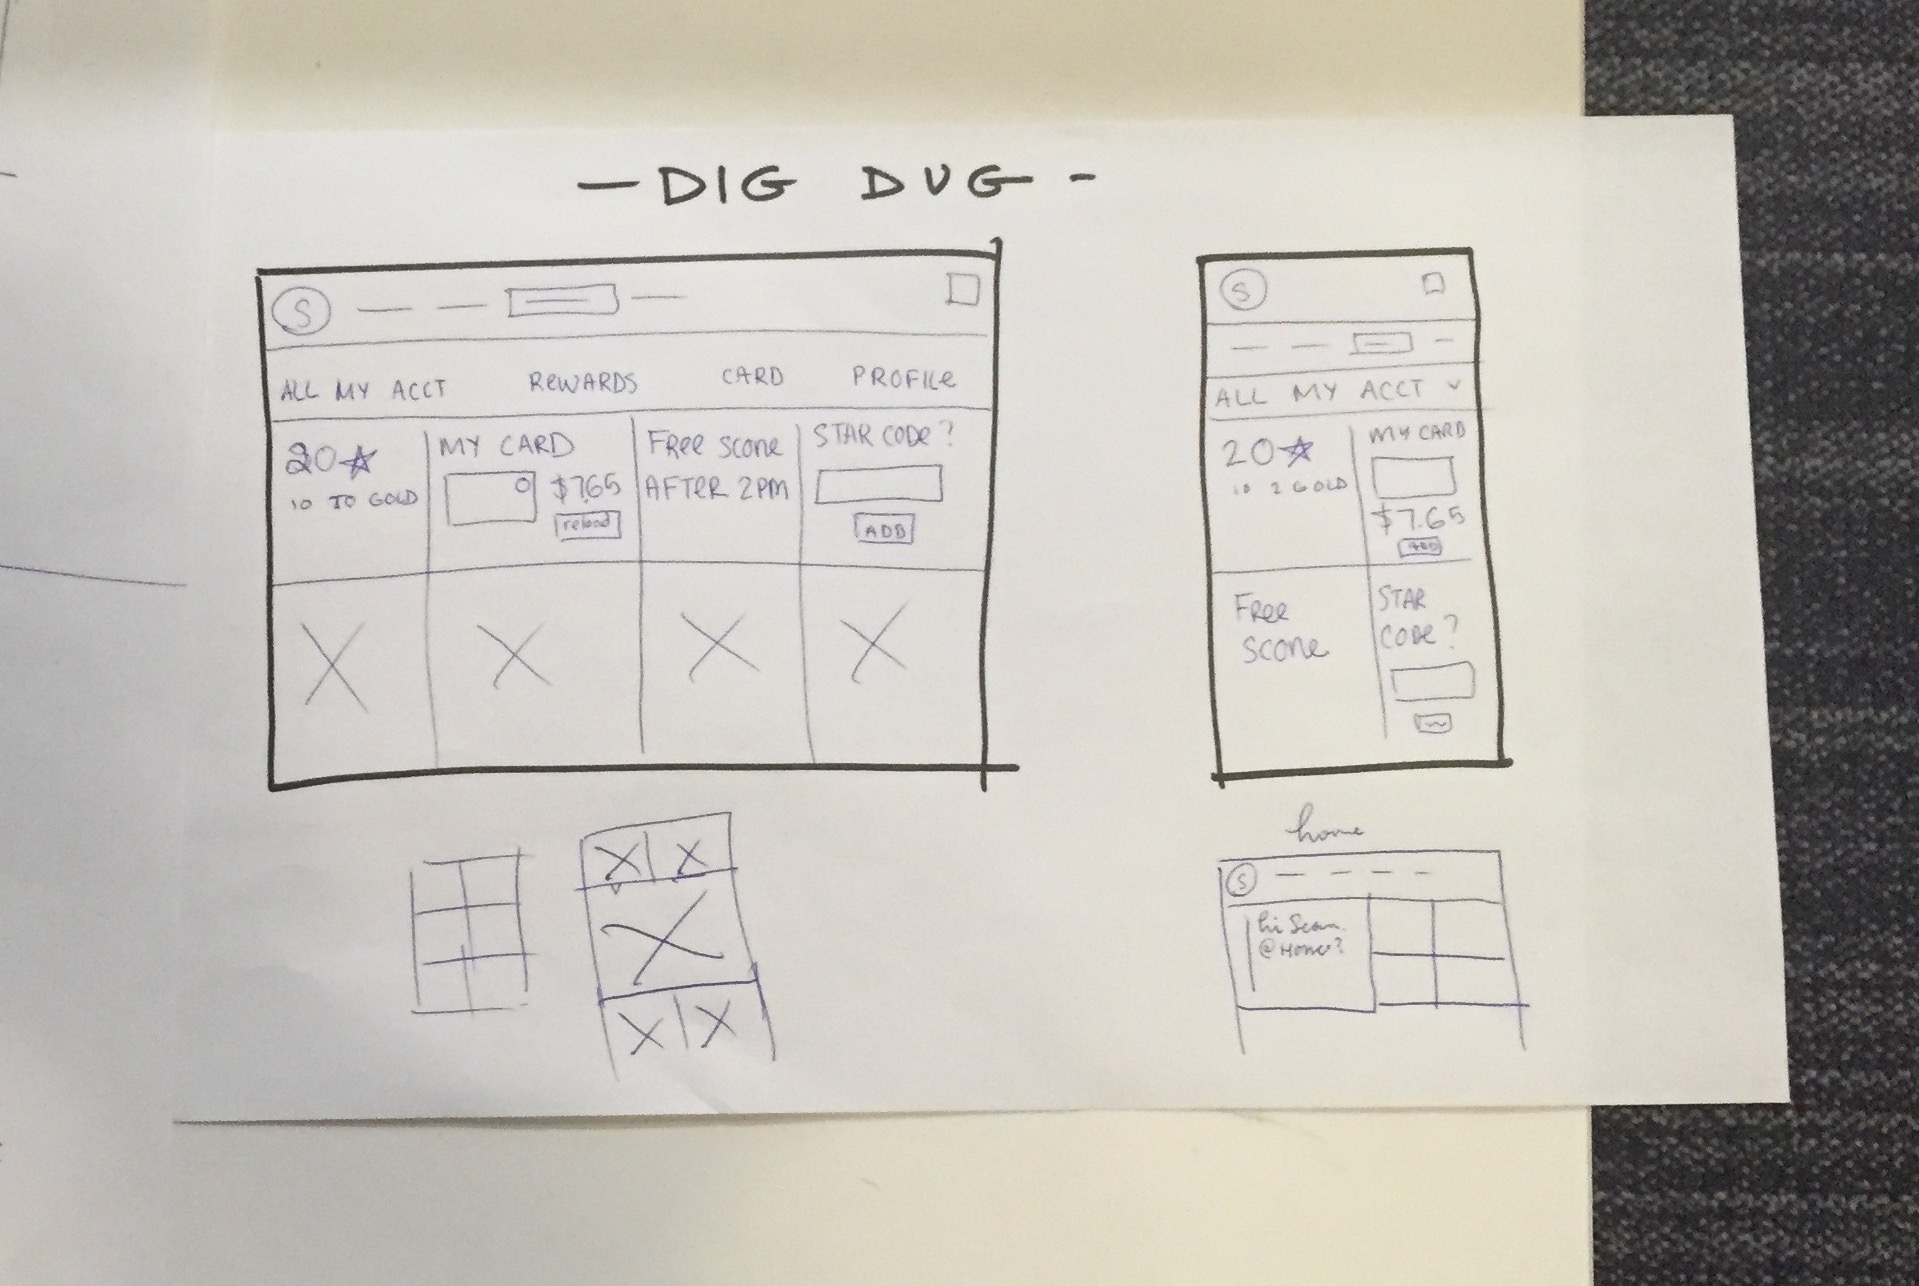 - DIG DUG -
S
ALL MY ACCT REWARDS CARD PROFILE
20☆
10 TO GOLD
MY CARD
$7.65
reload
FREE SCONE
AFTER 2PM
STAR CODE?
ADD
S
ALL MY ACCT ˅
20☆
10 2 GOLD
MY CARD
$7.65
ADD
FREE
SCONE
STAR
CODE?
home
S
hi Sean.
@Home?